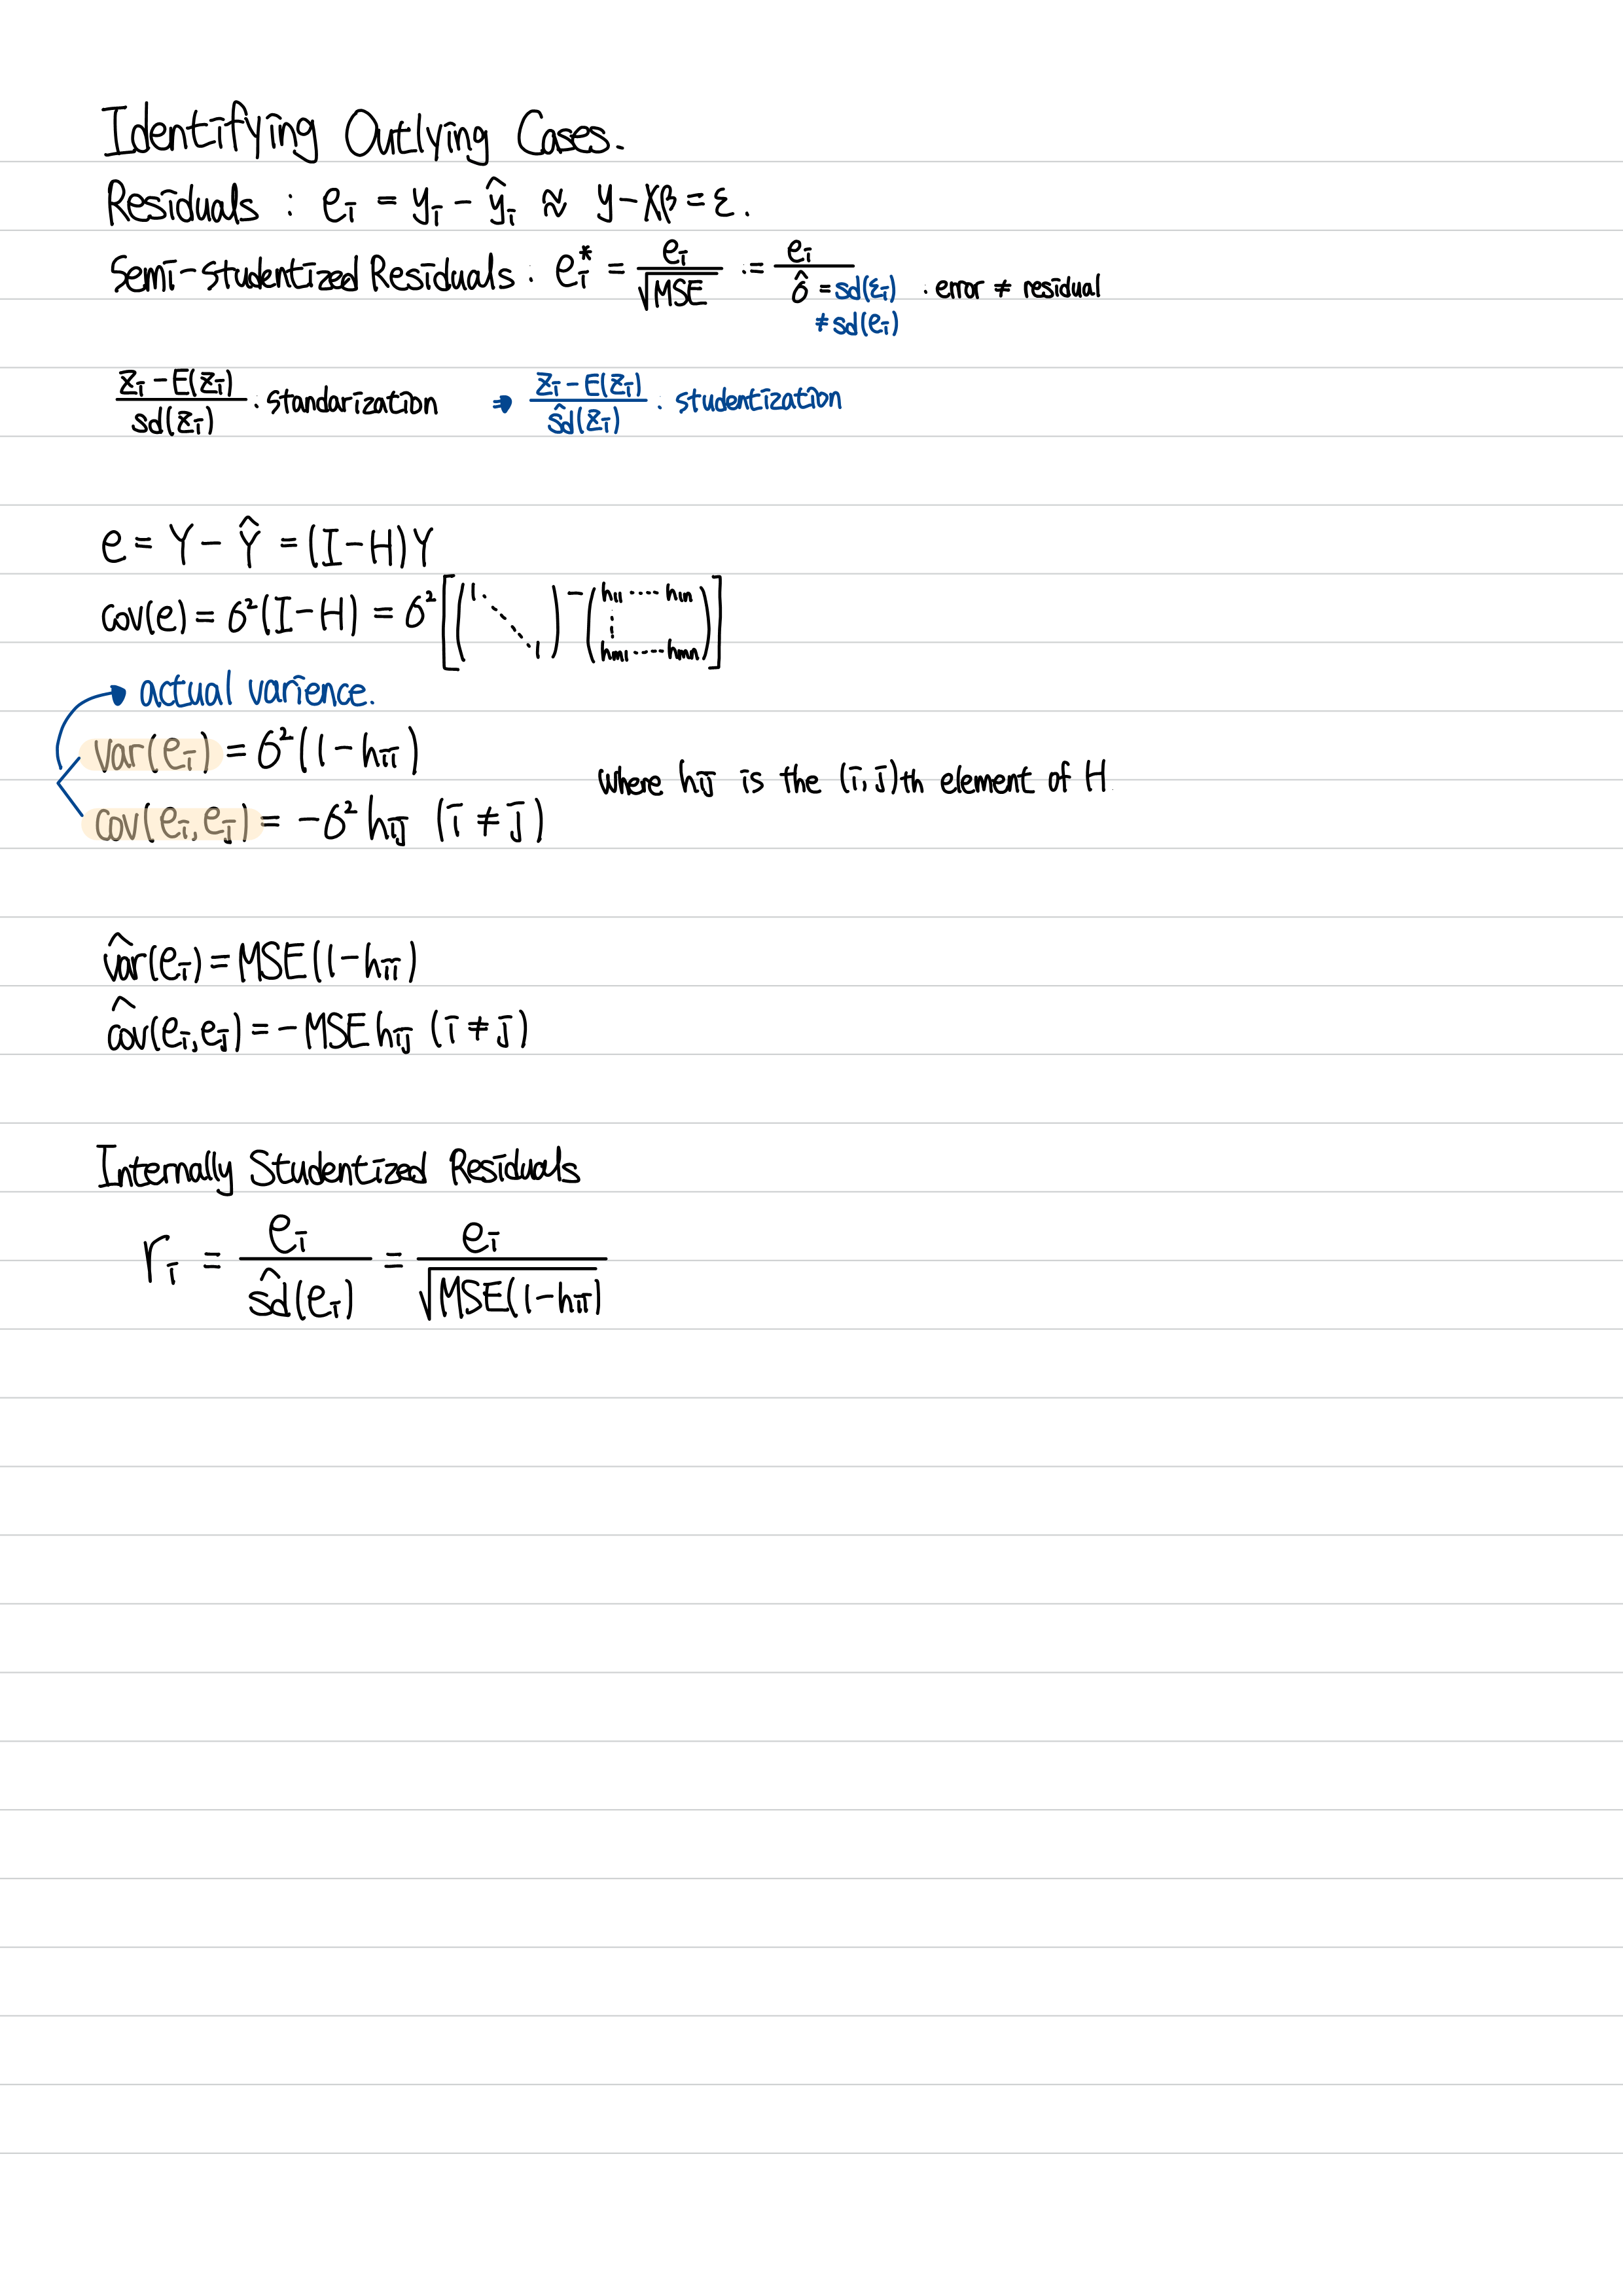 Identifying Outlying Cases.
Residuals : eᵢ = yᵢ - ŷᵢ ≈ y - Xβ = ε.
Semi-studentized Residuals : eᵢ* = eᵢ / √MSE := eᵢ / σ̂ = sd(εᵢ) : error ≠ residual
≠ sd(eᵢ)
(zᵢ - E(zᵢ)) / sd(zᵢ) : standarization ⇒ (zᵢ - E(zᵢ)) / ŝd(zᵢ) : studentization
e = Y - Ŷ = (I - H)Y
cov(e) = σ²(I - H) = σ²[(1 ⋱ 1) - (h₁₁ ····· h₁ₙ ⋮ hₙ₁ ····· hₙₙ)]
actual varience.
var(eᵢ) = σ²(1 - hᵢᵢ)
where hᵢⱼ is the (i, j)th element of H
cov(eᵢ, eⱼ) = -σ² hᵢⱼ (i ≠ j)
v̂ar(eᵢ) = MSE(1 - hᵢᵢ)
ĉov(eᵢ, eⱼ) = -MSE hᵢⱼ (i ≠ j)
Internally Studentized Residuals
rᵢ = eᵢ / ŝd(eᵢ) = eᵢ / √MSE(1 - hᵢᵢ)